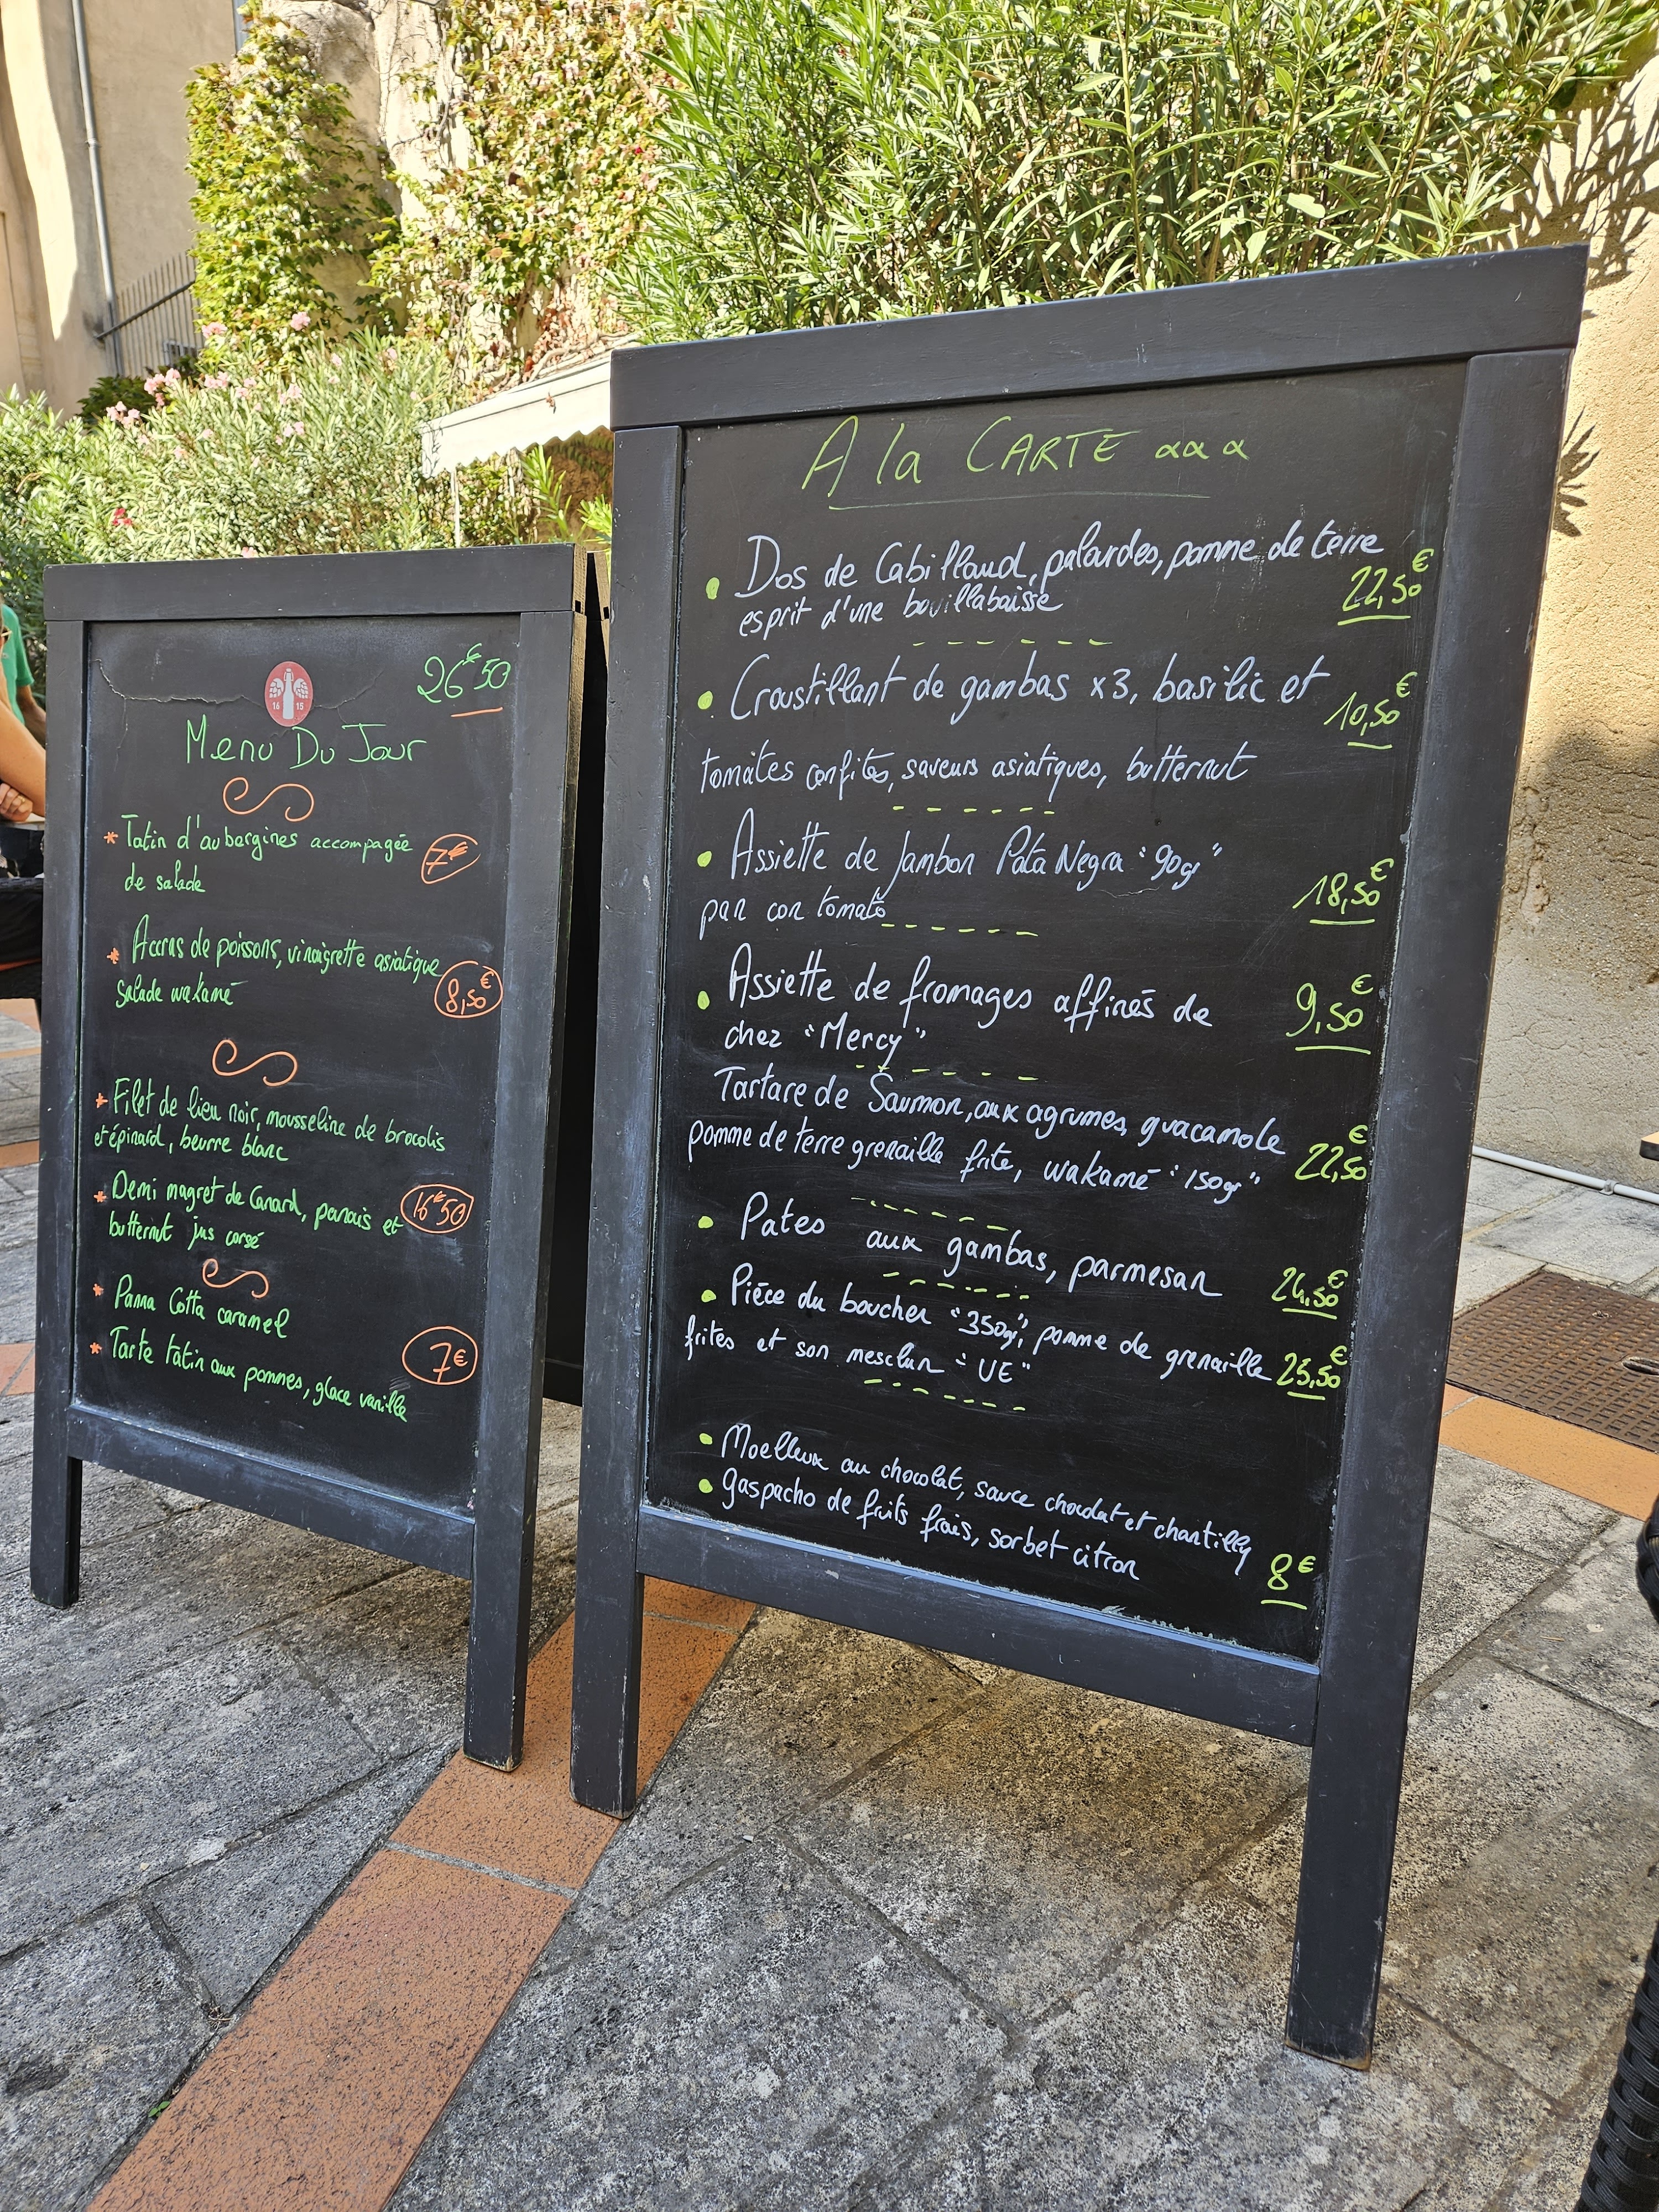 26€50
16 15
Menu Du Jour
* Tatin d'aubergines accompagée
7€
de salade
* Accras de poissons, vinaigrette asiatique
salade wakamé
8,50€
* Filet de lieu noir, mousseline de brocolis
et épinard, beurre blanc
* Demi magret de Canard, panais et
16€50
butternut jus corsé
* Panna Cotta caramel
7€
* Tarte tatin aux pommes, glace vanille
A la CARTE
• Dos de Cabillaud, palourdes, pomme de terre
esprit d'une bouillabaisse
22,50€
• Croustillant de gambas x3, basilic et
10,50€
tomates confites, saveurs asiatiques, butternut
• Assiette de Jambon Pata Negra "90gr"
pan con tomato
18,50€
• Assiette de fromages affinés de
chez "Mercy"
9,50€
Tartare de Saumon, aux agrumes, guacamole
pomme de terre grenaille frite, wakamé "150gr"
22,50€
• Pates aux gambas, parmesan
24,50€
• Pièce du boucher "350gr", pomme de grenaille
frites et son mesclun "UE"
25,50€
• Moelleux au chocolat, sauce chocolat et chantilly
• gaspacho de fruits frais, sorbet citron
8€